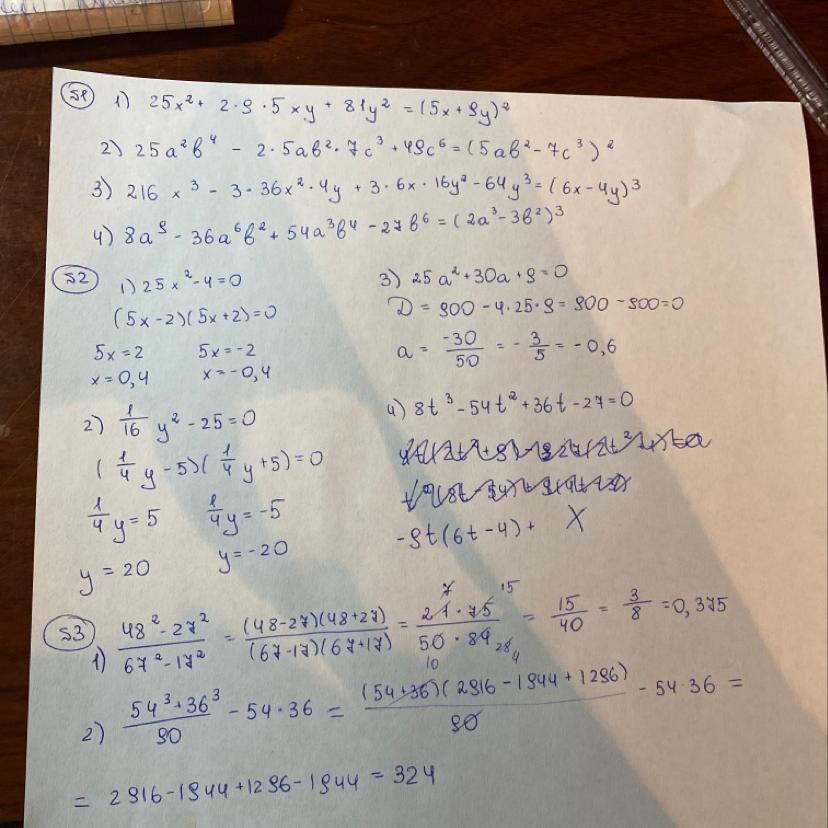 S1 1) 25x² + 2·9·5xy + 81y² = (5x + 9y)²
2) 25a²b⁴ - 2·5ab²·7c³ + 49c⁶ = (5ab² - 7c³)²
3) 216x³ - 3·36x²·4y + 3·6x·16y² - 64y³ = (6x - 4y)³
4) 8a⁹ - 36a⁶b² + 54a³b⁴ - 27b⁶ = (2a³ - 3b²)³
S2 1) 25x² - 4 = 0
(5x - 2)(5x + 2) = 0
5x = 2 5x = -2
x = 0,4 x = -0,4
2) 1/16 y² - 25 = 0
(1/4 y - 5)(1/4 y + 5) = 0
1/4 y = 5 1/4 y = -5
y = 20 y = -20
3) 25a² + 30a + 9 = 0
D = 900 - 4·25·9 = 900 - 900 = 0
a = -30/50 = -3/5 = -0,6
4) 8t³ - 54t² + 36t - 27 = 0
-9t(6t - 4) + X
S3 1) (48² - 27²)/(67² - 17²) = ((48 - 27)(48 + 27))/((67 - 17)(67 + 17)) = (21 · 75)/(50 · 84) = 15/40 = 3/8 = 0,375
7 15
10 28 4
2) (54³ + 36³)/90 - 54·36 = ((54 + 36)(2916 - 1944 + 1296))/90 - 54·36 =
= 2916 - 1944 + 1296 - 1944 = 324